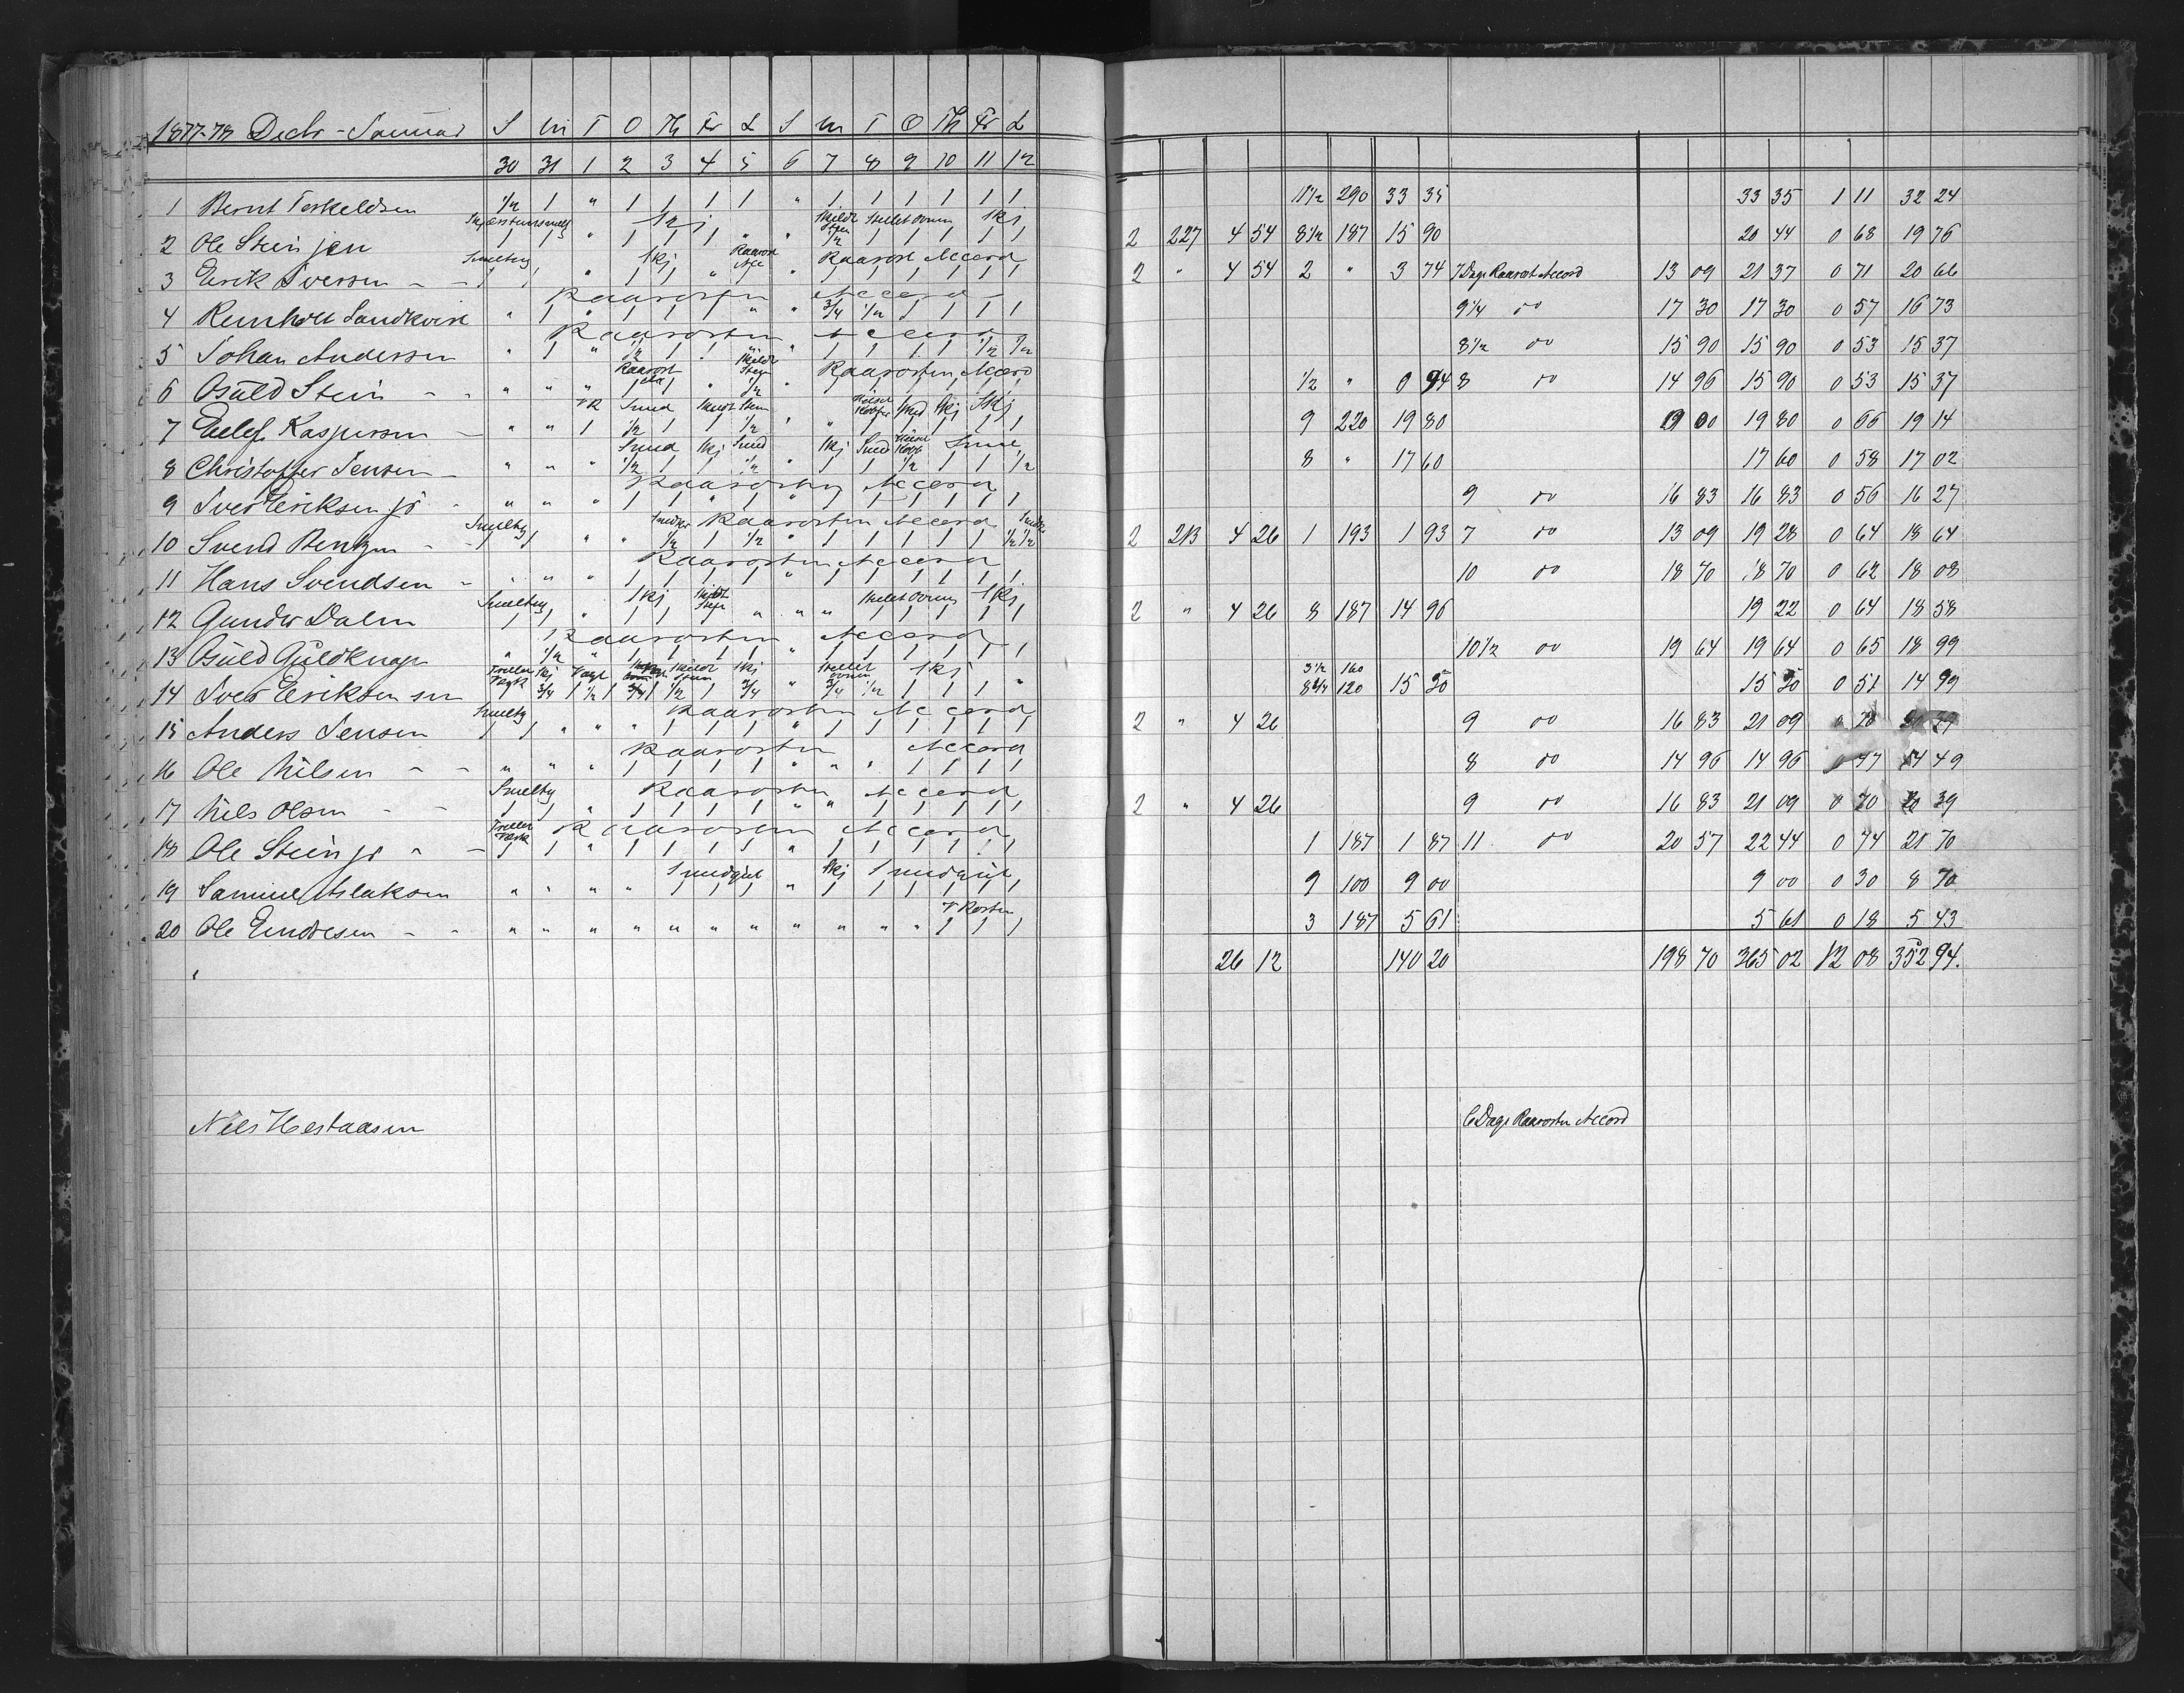 1877-78 Decbr - Januar S M T O Th Fr L S M T O Th Fr L
30 31 1 2 3 4 5 6 7 8 9 10 11 12
1 Bernt Torkeldsen ½ 1 " 1 1 1 1 " 1 1 1 1 1 1 11½ 290 33 35 33 35 1 11 32 24
Skj Skildt Steen Skillet Ovnen Skj
2 Ole Stein jen 1 1 " 1 1 1 " " ½ 1 1 1 1 1 2 227 4 54 8½ 187 15 90 20 44 0 68 19 76
Smeltng Skj Raarost Acc Raarost Accord
3 Eerik Iversen - - 1 1 " 1 1 " 1 " 1 1 1 1 1 1 2 " 4 54 2 " 3 74 7 Dage Raarost Accord 13 09 21 37 0 71 20 66
Raarosten Accord
4 Reinholt Sandkvist " 1 " 1 1 1 " " ¾ ½ 1 1 1 1 9¼ do 17 30 17 30 0 57 16 73
Raarosten Accord
5 Johan Andersen " 1 " ½ 1 " " " 1 1 1 1 ½ ½ 8½ do 15 90 15 90 0 53 15 37
Raarost Skildt Steen Raarosten Accord
6 Osuld Stein - - " " " 1 1 " ½ " 1 1 1 1 1 1 ½ " 0 94 8 do 14 96 15 90 0 53 15 37
Smed Skildt Steen Smed Skj Skj
7 Eelef Kaspersen - " " 1 ½ 1 1 ½ " " 1 1 1 1 1 9 220 19 80 19 80 0 66 19 14
Smed Skj Smed Skj Smed
8 Christoffer Jensen - " " " ½ 1 1 ½ " 1 1 ½ 1 1 ½ 8 " 17 60 17 60 0 58 17 02
Raarosten Accord
9 Iver Eeriksen jr - " " " 1 1 " 1 " 1 1 1 1 1 1 9 do 16 83 16 83 0 56 16 27
Smeltng Raarosten Accord
10 Svend Bentzen - - 1 1 " " ½ 1 ½ " 1 1 1 1 1 ½ ½ 2 213 4 26 1 193 1 93 7 do 13 09 19 28 0 64 18 64
Raarosten Accord
11 Hans Svendsen - " " " 1 1 1 1 " 1 1 1 1 1 1 10 do 18 70 18 70 0 62 18 08
Smeltng Skj Skildt Steen Skillet Ovnen Skj
12 Gunder Dalen 1 1 " 1 1 1 " " " 1 1 1 1 1 2 " 4 26 8 187 14 96 19 22 0 64 18 58
Raarosten Accord
13 Osuld Guldknap " ½ " 1 1 1 1 " 1 1 1 1 1 1 10½ do 19 64 19 64 0 65 18 99
Skj Vagt Skildt Steen Skj Skillet Ovnen Skj 3½ 160
14 Iver Eeriksen sen 1 ¾ 1 ½ 1 ¾ 1 ½ 1 ¾ " ¾ ½ 1 1 1 " 8¾ 120 15 50 15 50 0 51 14 99
Smeltng Raarosten Accord
15 Anders Jensen 1 1 " " " 1 1 1 " 1 1 1 1 1 1 2 " 4 26 9 do 16 83 21 09 0 70 20 39
Raarosten Accord
16 Ole Nilsen - - " " " 1 1 1 1 " " " 1 1 1 1 8 do 14 96 14 96 0 47 14 49
Smeltng Raarosten Accord
17 Nils Olsen - - 1 1 " 1 1 1 1 " " 1 1 1 1 1 2 " 4 26 9 do 16 83 21 09 0 70 20 39
Raarosten Accord
18 Ole Stein jr " - 1 1 " 1 1 1 1 " 1 1 1 1 1 1 1 187 1 87 11 do 20 57 22 44 0 74 21 70
Smedgut Skj Smedgut
19 Samuel Aslaksen " " " " 1 1 1 " 1 1 1 1 1 1 9 100 9 00 9 00 0 30 8 70
V Rosten
20 Ole Emdresen - - " " " " " " " " " " " 1 1 1 3 187 5 61 5 61 0 18 5 43
26 12 140 20 198 70 365 02 12 08 352 94.
Nils Hestaasen 6 Dage Raarosten Accord